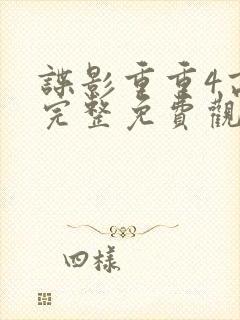 諜影重重4
完整免費觀
四樣